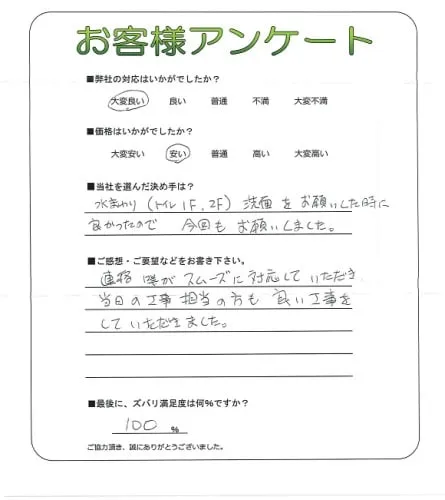 お客様アンケート
■弊社の対応はいかがでしたか？
大変良い 良い 普通 不満 大変不満
■価格はいかがでしたか？
大変安い 安い 普通 高い 大変高い
■当社を選んだ決め手は？
水まわり（トイレ1F、2F）洗面をお願いした時に
良かったので 今回もお願いしました。
■ご感想・ご要望などをお書き下さい。
がスムーズに対応していただき
当日の工事担当の方も良い工事を
していただきました。
■最後に、ズバリ満足度は何%ですか？
100 %
ご協力頂き、誠にありがとうございました。